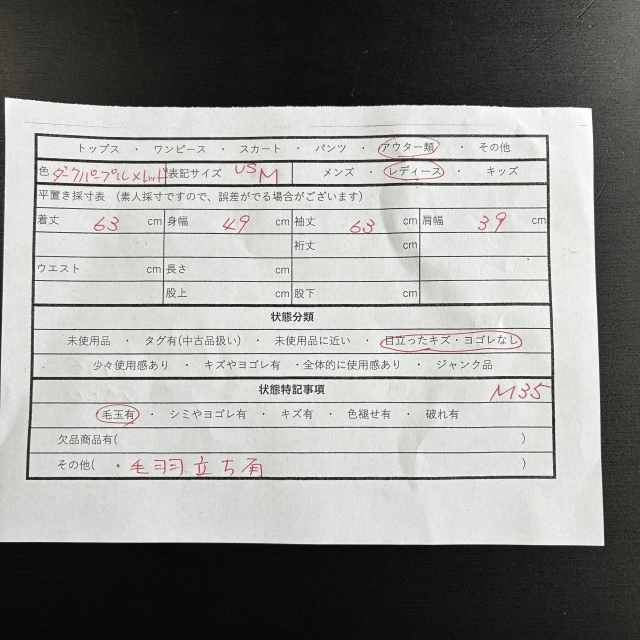 トップス ・ ワンピース ・ スカート ・ パンツ ・ アウター類 ・ その他
色 ダークパープル×レッド 表記サイズ US M メンズ ・ レディース ・ キッズ
平置き採寸表 (素人採寸ですので、誤差がでる場合がございます)
着丈 63 cm 身幅 49 cm 袖丈 63 cm 肩幅 39 cm
裄丈 cm
ウエスト cm 長さ cm
股上 cm 股下 cm
状態分類
未使用品 ・ タグ有(中古品扱い) ・ 未使用品に近い ・ 目立ったキズ・ヨゴレなし
少々使用感あり ・ キズやヨゴレ有 ・全体的に使用感あり ・ ジャンク品
状態特記事項 M35
毛玉有 ・ シミやヨゴレ有 ・ キズ有 ・ 色褪せ有 ・ 破れ有
欠品商品有( )
その他( ・毛羽立ち有 )